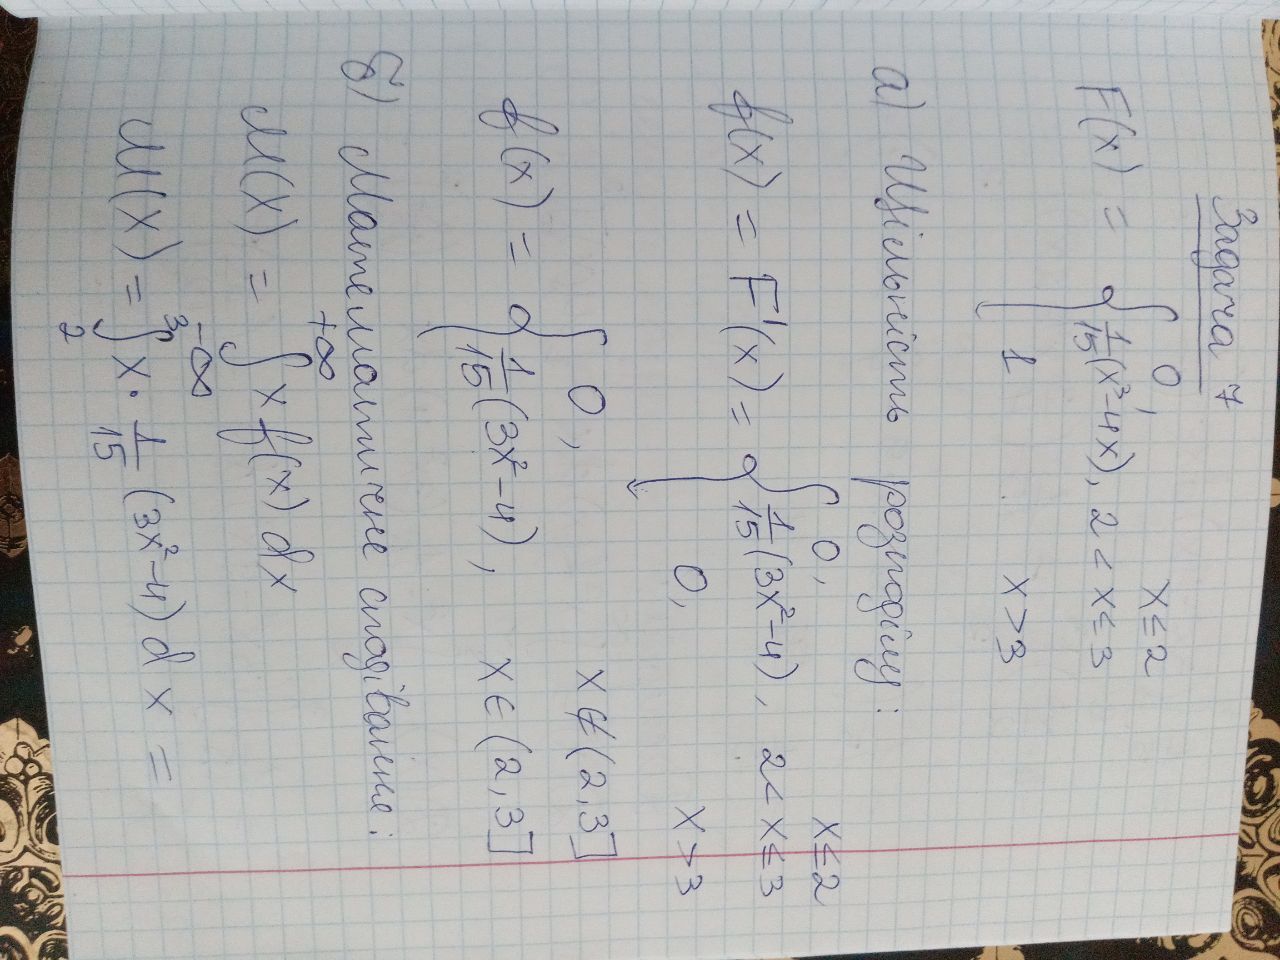 Задача 7
F(x) = { 0, x ≤ 2
1/15 (x³-4x), 2 < x ≤ 3
1 x > 3
а) Щільність розподілу:
f(x) = F'(x) = { 0, x ≤ 2
1/15 (3x²-4), 2 < x ≤ 3
0, x > 3
f(x) = { 0, x ∉ (2,3]
1/15 (3x²-4), x ∈ (2,3]
б) Математичне сподівання:
M(X) = ∫_{-∞}^{+∞} x f(x) dx
M(X) = ∫_{2}^{3} x · 1/15 (3x²-4) dx =